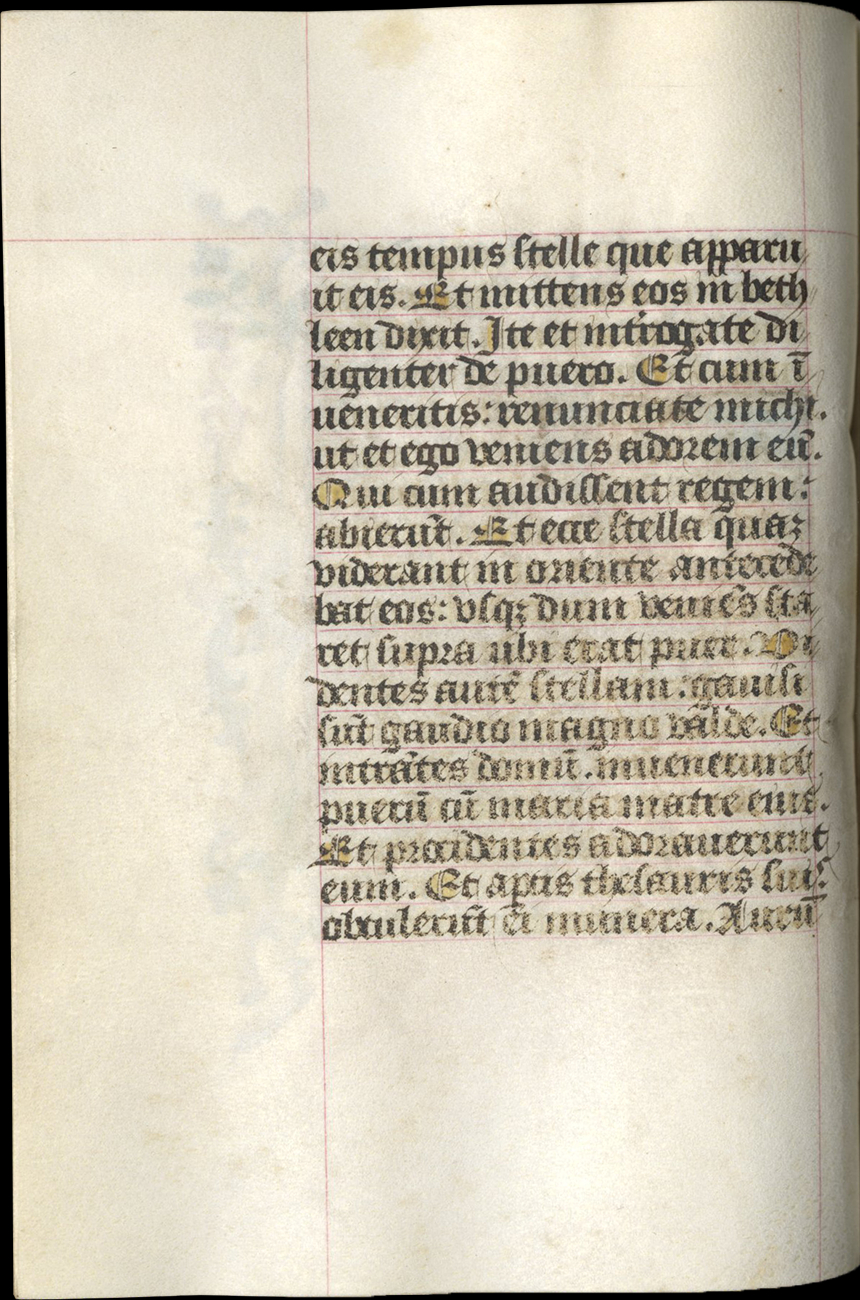 eis tempus stelle que apparu
it eis. Et mittens eos in beth
leen dixit. Ite et introgate di
ligenter de puero. Et cum ī
ueneritis: renunciate michi.
ut et ego veniens adorem eū.
Qui cum audissent regem:
abierūt. Et ecce stella quaꝫ
viderant in oriente antecede
bat eos: vsqꝫ dum veniēs sta
ret supra ubi erat puer. Vi
dentes autē stellam: gauisi
sūt gaudio magno valde. Et
intrātes domū. inuenerunt
puerū cū maria matre eius.
Et procidentes adorauerunt
eum. Et aptis thesauris suis
obtulerūt ei munera. Aurū